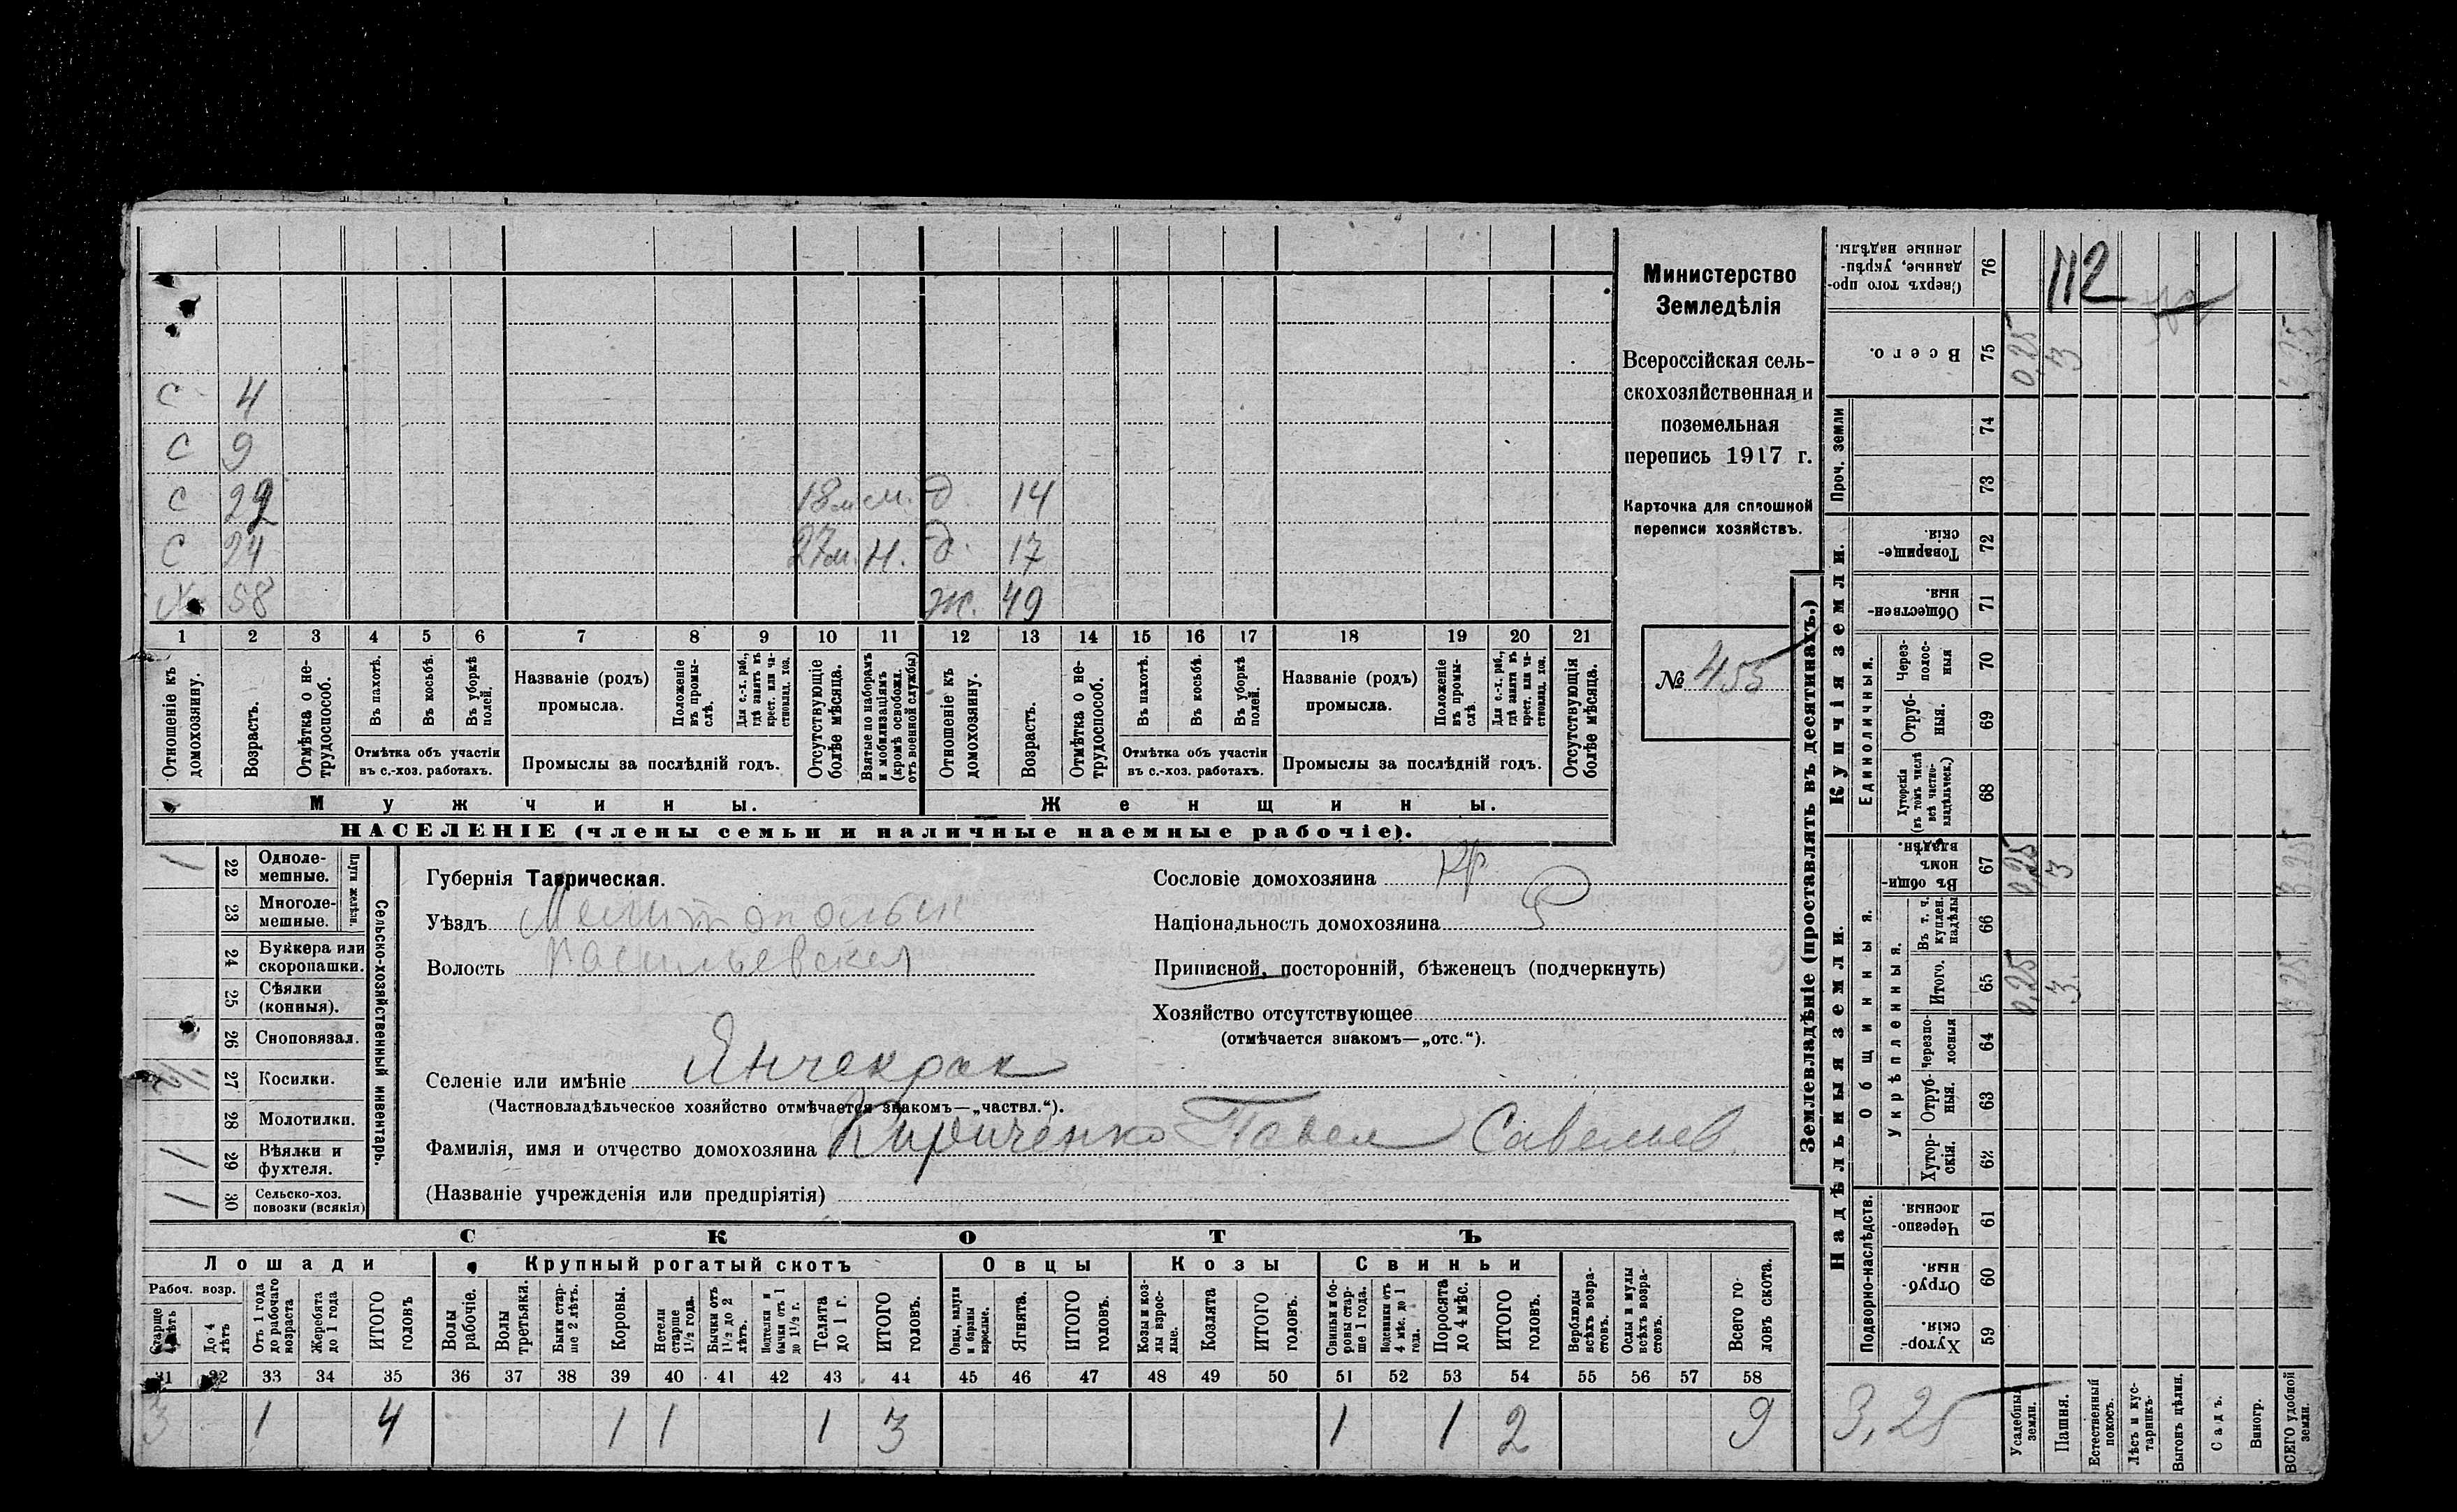 С 4
С 9
С 22 18 м м. д. 14
С 24 27 м. Н. д. 17
58 Ж. 49
1 2 3 4 5 6 7 8 9 10 11 12 13 14 15 16 17 18 19 20 21
Отношеніе къ домохозяину.
Возрастъ.
Отмѣтка о не-трудоспособ.
Въ пахотѣ.
Въ косьбѣ.
Въ уборкѣ полей.
Отмѣтка объ участіи
въ с.-хоз. работахъ.
Названіе (родъ)
промысла.
Положеніе въ промы-слѣ.
Для с.-х. раб., гдѣ занятъ въ крест. или ча-стновлад. хоз.
Промыслы за послѣдній годъ.
Отсутствующіе болѣе мѣсяца.
Взятые по наборамъ и мобилизаціямъ (кромѣ освобожд. отъ военной службы)
Отношеніе къ домохозяину.
Возрастъ.
Отмѣтка о не-трудоспособ.
Въ пахотѣ.
Въ косьбѣ.
Въ уборкѣ полей.
Отмѣтка объ участіи
въ с.-хоз. работахъ.
Названіе (родъ)
промысла.
Положеніе въ промы-слѣ.
Для с.-х. раб., гдѣ занята въ крест. или ча-стновлад. хоз.
Промыслы за послѣдній годъ.
Отсутствующія болѣе мѣсяца.
Мужчины. Женщины.
НАСЕЛЕНІЕ (члены семьи и наличные наемные рабочіе).
Министерство
Земледѣлія
Всероссійская сель-
скохозяйственная и
поземельная
перепись 1917 г.
Карточка для сплошной
переписи хозяйствъ.
№ 455
Сельско-хозяйственный инвентарь.
Плуги желѣзн.
1 22 Одноле-мешные.
23 Многоле-мешные.
24 Буккера или скоропашки.
25 Сѣялки (конныя).
26 Сноповязал.
27 Косилки.
28 Молотилки.
1 29 Вѣялки и фухтеля.
1 30 Сельско-хоз. повозки (всякія)
Губернія Таврическая.
Уѣздъ Мелитопольск
Волость Васильевская
Сословіе домохозяина кр
Національность домохозяина Р
Приписной, посторонній, бѣженецъ (подчеркнуть)
Хозяйство отсутствующее
(отмѣчается знакомъ—„отс.“).
Селеніе или имѣніе Янчекрак
(Частновладѣльческое хозяйство отмѣчается знакомъ—„частвл.“).
Фамилія, имя и отчество домохозяина Кириченко Павел Савельев
(Названіе учрежденія или предпріятія)
СКОТЪ
Лошади Крупный рогатый скотъ Овцы Козы Свиньи
Рабоч. возр.
Старше 4 лѣтъ
До 4 лѣтъ
Отъ 1 года до рабочаго возраста
Жеребята до 1 года
ИТОГО головъ
Волы рабочіе.
Волы третьяки.
Быки стар-ше 2 лѣтъ.
Коровы.
Нетели старше 1½ года.
Бычки отъ 1½ до 2 лѣтъ.
Подтелки и бычки отъ 1 до 1½ г.
Телята до 1 г.
ИТОГО головъ.
Овцы, валухи и бараны взрослые.
Ягнята.
ИТОГО головъ.
Козы и коз-лы взрос-лые.
Козлята
ИТОГО головъ.
Свиньи и бо-ровы стар-ше 1 года.
Подсвинки отъ 4 мѣс. до 1 года.
Поросята до 4 мѣс.
ИТОГО головъ.
Верблюды всѣхъ возра-стовъ.
Ослы и мулы всѣхъ возра-стовъ.
Всего го-ловъ скота.
31 32 33 34 35 36 37 38 39 40 41 42 43 44 45 46 47 48 49 50 51 52 53 54 55 56 57 58
3 1 4 1 1 1 3 1 1 2 9
Землевладѣніе (проставлять въ десятинахъ.)
Купчія земли.
Надѣльныя земли.
Сверхъ того про-данные, укрѣп-ленные надѣлы. 76 112
Всего. 75 0,25 3 3,25
Проч. земли 74
73
Товарище-скія. 72
Обществен-ныя. 71
Единоличныя.
Через-полос-ныя 70
Отруб-ныя. 69
Хуторскія (въ томъ числѣ всѣ частно-владѣльческ.) 68
Общинныя.
Въ общин-номъ владѣн. 67 0,25 3 3,25
Укрѣпленныя.
Въ т. ч. куплен. надѣлы 66
Итого. 65 0,25 3. 3,25.
Черезпо-лосныя 64
Отруб-ныя. 63
Хутор-скія. 62
Подворно-наслѣдств.
Черезпо-лосныя. 61
Отруб-ныя. 60
Хутор-скія. 59
3,25
Усадебныя земли.
Пашня.
Естественный покосъ.
Лѣсъ и кус-тарникъ.
Выгонъ цѣлин.
Садъ.
Виногр.
ВСЕГО удобной земли.